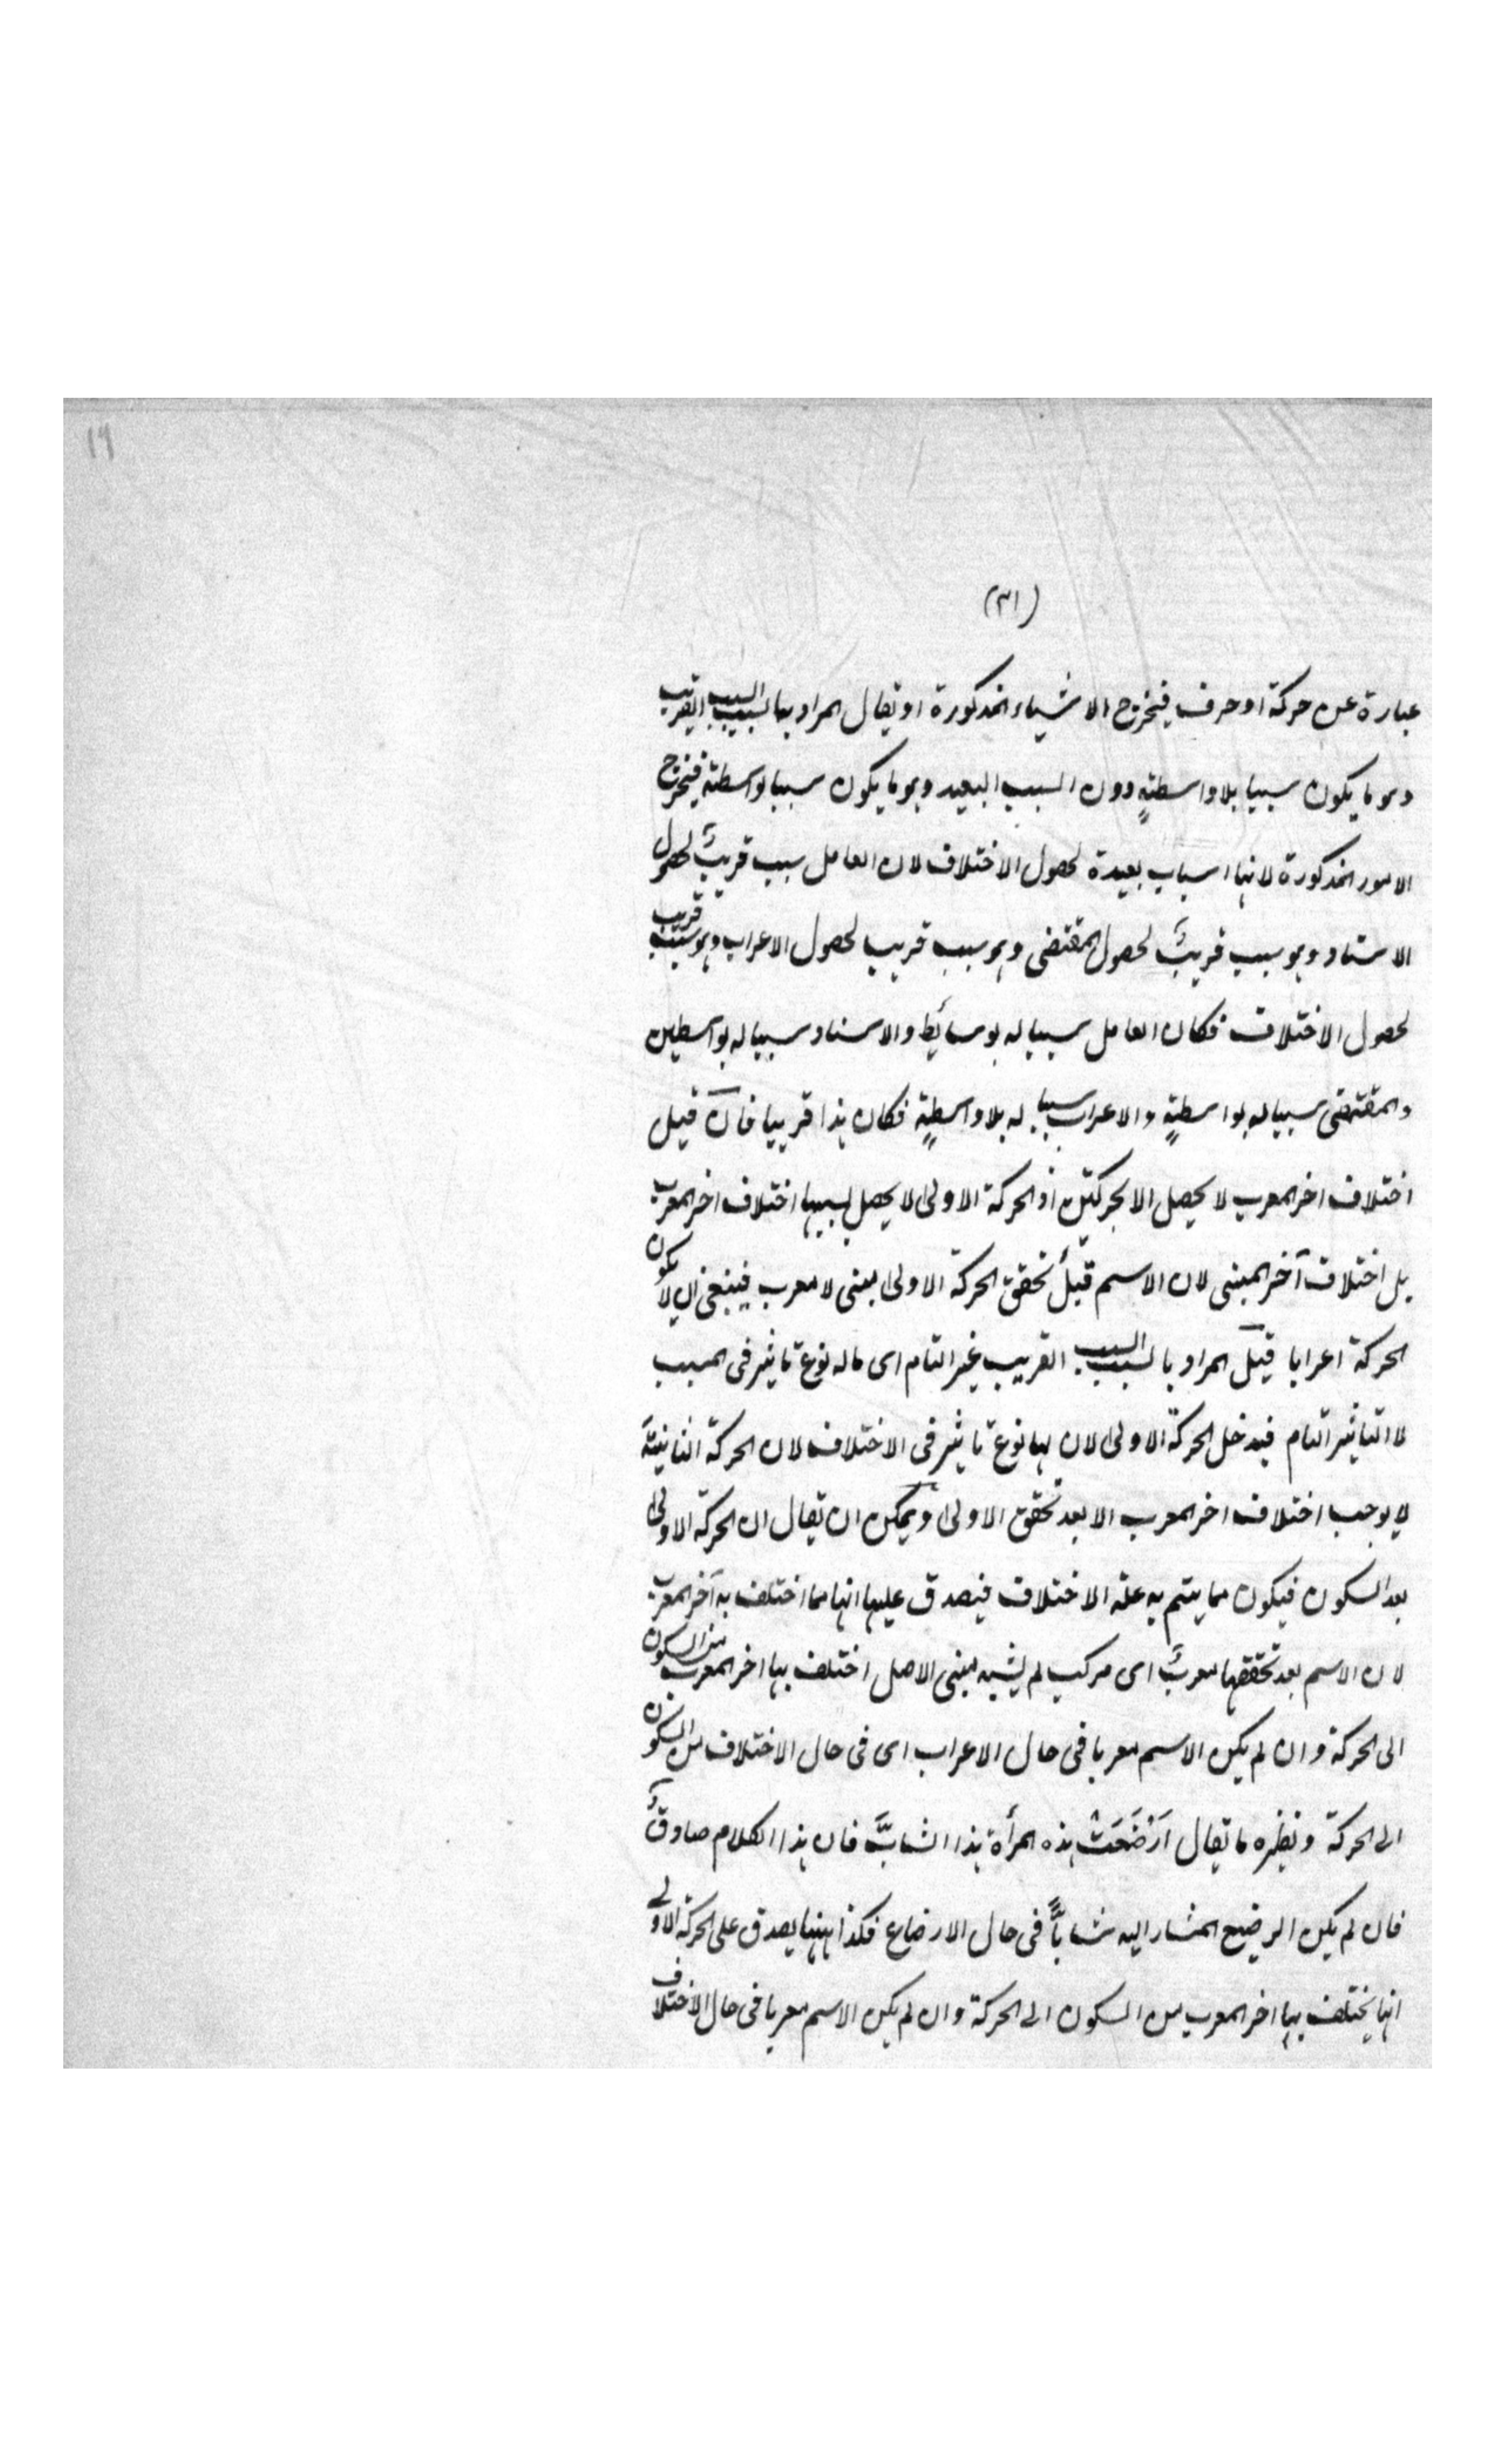 ١٩
(٣١)
عبارة عن حركة او حرف فيخرج الاشياء المذكورة او يقال المراد بها السبب القريب
وهو ما يكون سببا بلا واسطةٍ دون السبب البعيد وهو ما يكون سببا بواسطة فيخرج
الامور المذكورة لانها اسباب بعيدة لحصول الاختلاف لان العامل سبب قريبٌ لحصول
الاسناد وهو سبب قريبٌ لحصول المقتضى وهو سبب قريب لحصول الاعراب وهو سبب قريب
لحصول الاختلاف فكان العامل سببا له بوسائط والاسناد سببا له بواسطين
والمقتضى سببا له بواسطةٍ والاعراب سببا له بلا واسطةٍ فكان هذا قريبا فان قيل
اختلاف اخر المعرب لا يحصل الا بحركتين اذ الحركة الاولى لا يحصل بسببها اختلاف اخر المعرب
بل اختلاف آخر المبنى لان الاسم قبل تحقق الحركة الاولى مبنى لا معرب فينبغى ان لا يكون
الحركة اعرابا قيل المراد بالسبب السبب القريب غير التام اى ما له نوع تاثير فى المسبب
لا التاثير التام فيدخل الحركة الاولى لان لها نوع تاثير فى الاختلاف لان الحركة الثانية
لا يوجب اختلاف اخر المعرب الا بعد تحقق الاولى ويمكن ان يقال ان الحركة الاولى
بعد السكون فيكون مما يتم به علة الاختلاف فيصدق عليها انها مما اختلف به آخر المعرب
لان الاسم بعد تحققها معربٌ اى مركب لم يشبه مبنى الاصل اختلف بها اخر المعرب من السكون
الى الحركة وان لم يكن الاسم معربا فى حال الاعراب اى فى حال الاختلاف من السكون
الى الحركة ونظيره ما يقال اَرْضَعَتْ هذه المرأة هذا الشابَّ فان هذا الكلام صادقٌ
فان لم يكن الرضيع المشار اليه شابًّا فى حال الارضاع فكذا ههنا يصدق على الحركة الاولى
انها يختلف بها اخر المعرب من السكون الى الحركة وان لم يكن الاسم معربا فى حال الاختلاف